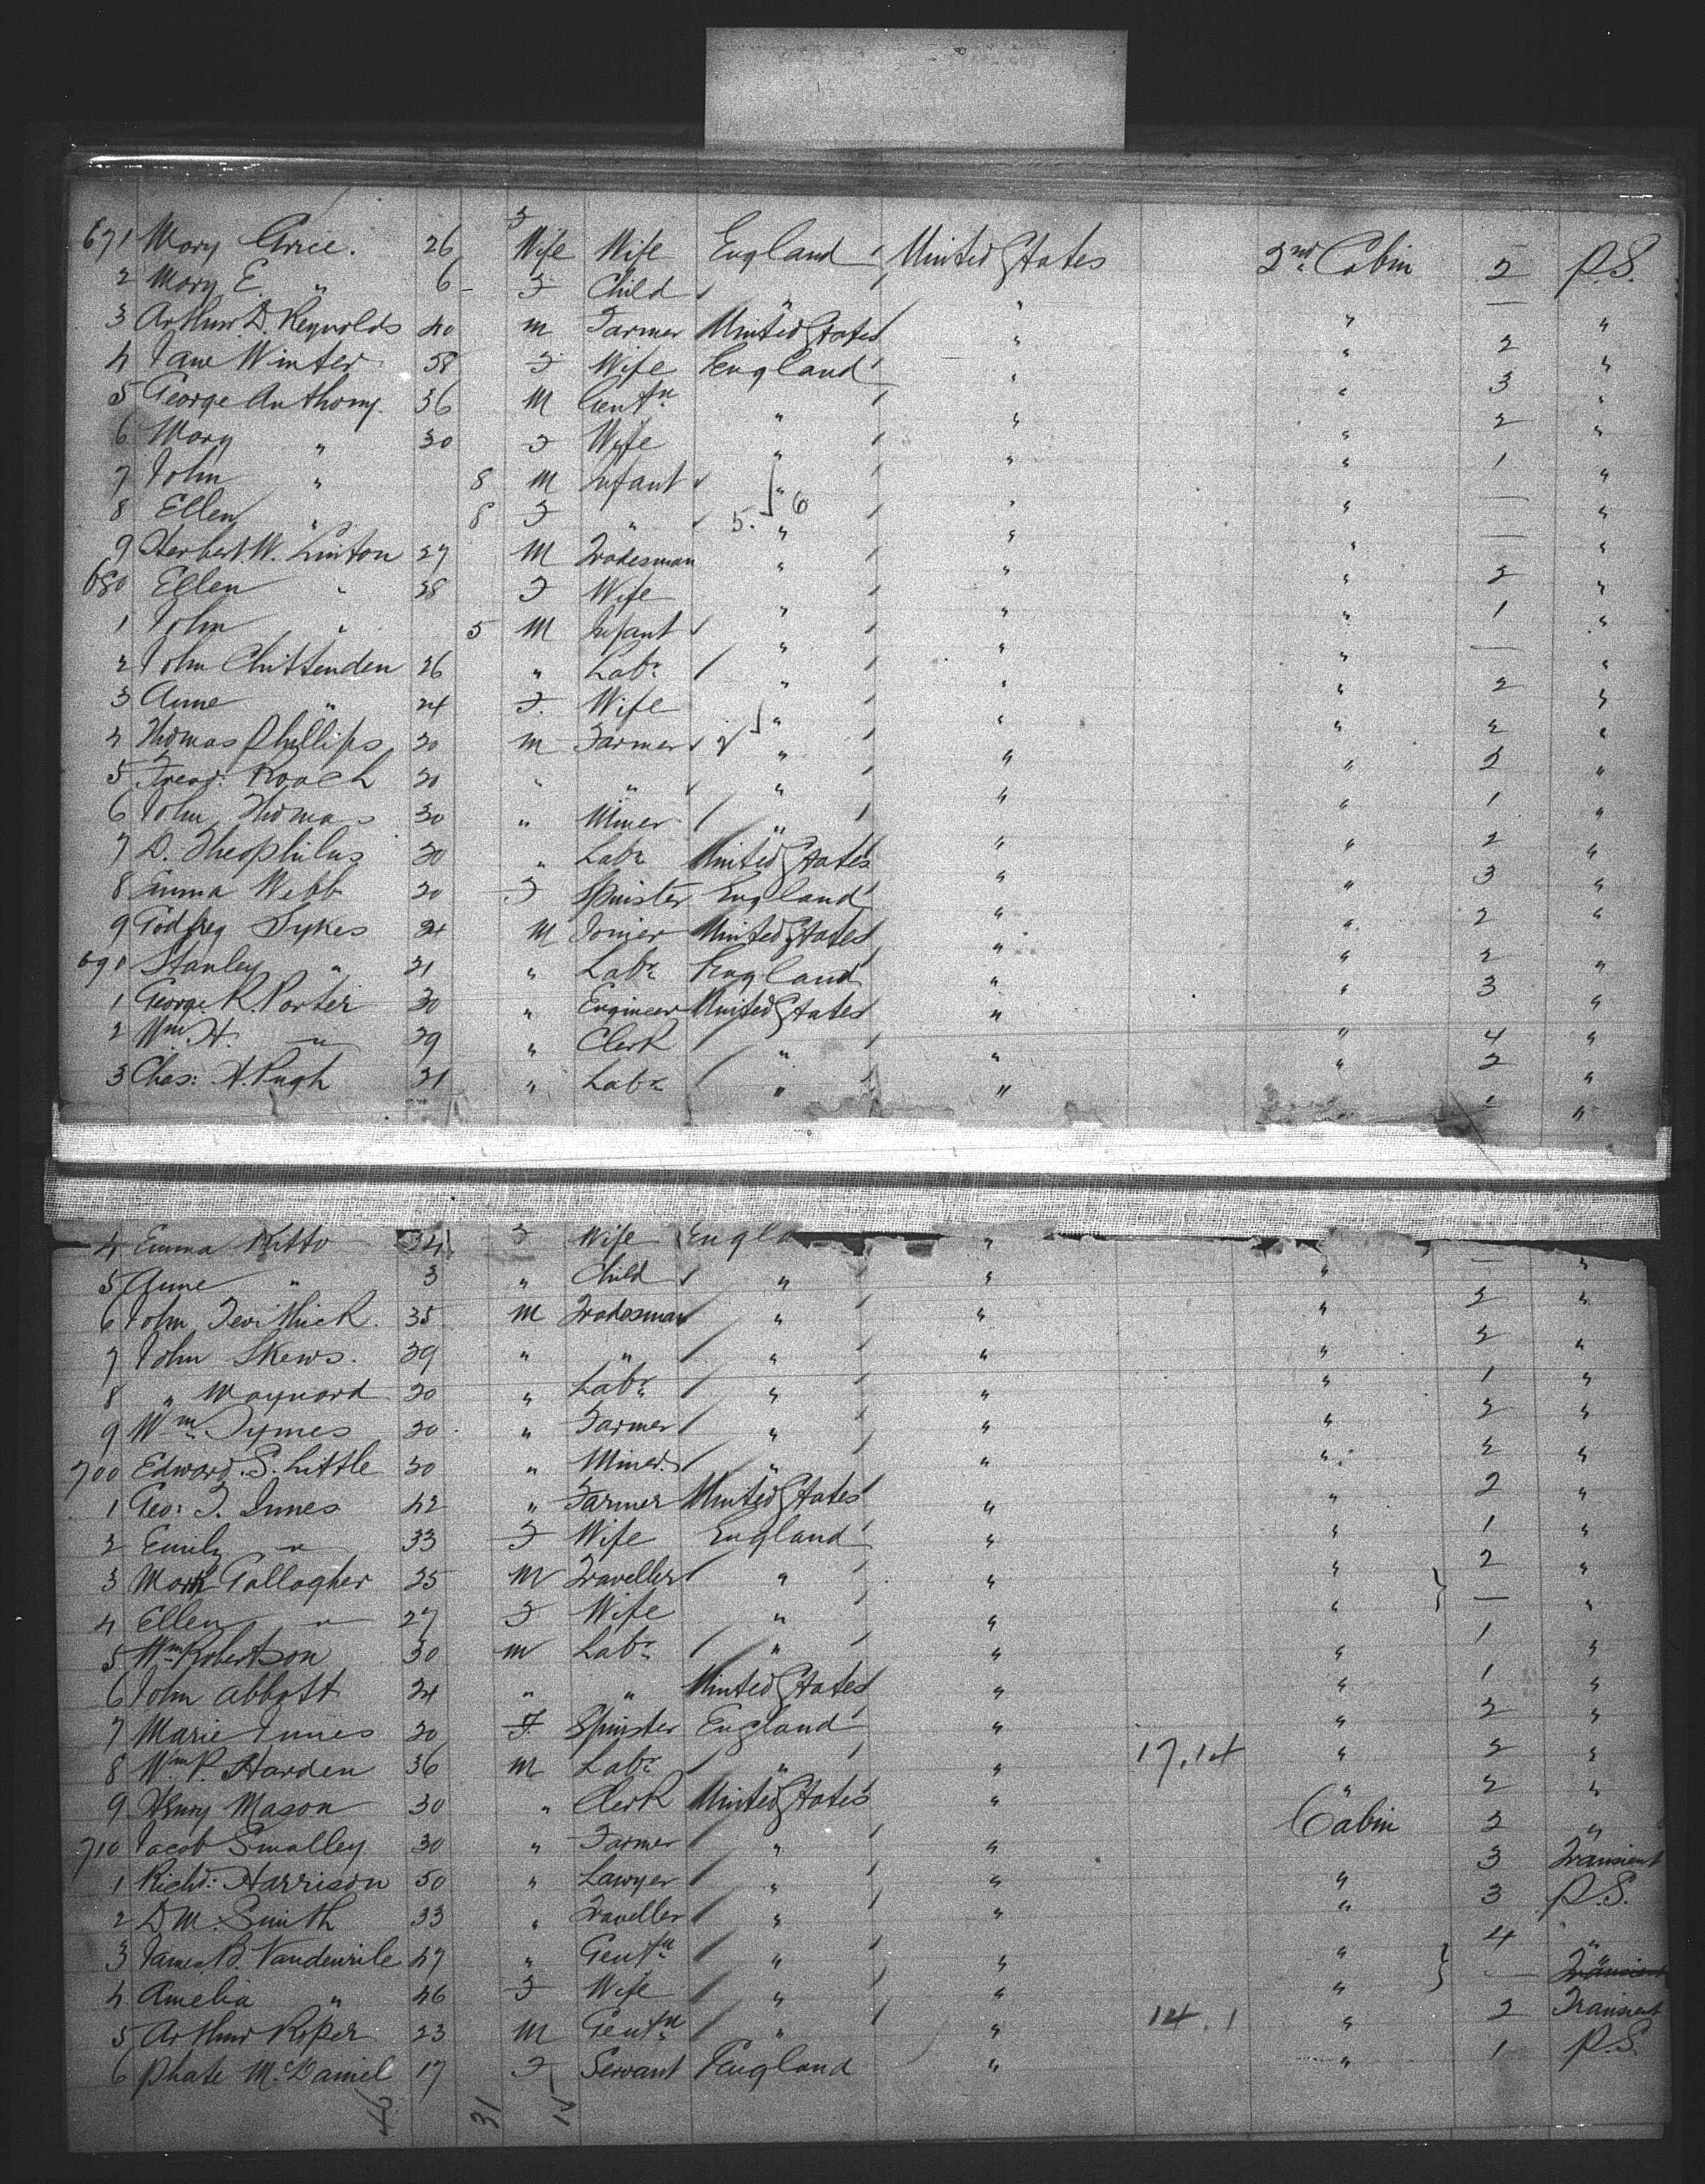 671 Mary Grice. 26 F Wife Wife England United States 2nd Cabin 2 P.S.
2 Mary E. " 6 F Child " " " — "
3 Arthur D. Reynolds 40 M Farmer United States " " 2 "
4 Jane Winter 58 F Wife England " " 3 "
5 George Anthony. 36 M Gentn " " " 2 "
6 Mary " 30 F Wife " " " 1 "
7 John " 8 M Infant " " " — "
8 Ellen " 8 F " 5. 6 " " " — "
9 Herbert W. Linton 27 M Tradesman " " " 2 "
680 Ellen " 28 F Wife " " " 1 "
1 John " 5 M Infant " " " — "
2 John Chittenden 26 " Labr " " " 2 "
3 Anne " 24 F. Wife " " " 2 "
4 Thomas Phillips 30 M Farmer " " " 2 "
5 Fread: Roach 30 " " " " " 1 "
6 John Thomas 30 " Miner " " " 2 "
7 D. Theophilus 30 " Labr United States " " 3 "
8 Emma Webb 20 F Spinster England " " 2 "
9 Godfrey Sykes 24 M Joiner United States " " 2 "
690 Stanley " 21 " Labr England " " 3 "
1 George R. Porter 30 " Engineer United States " " 4 "
2 Wm H. " 29 " Clerk " " " 2 "
3 Chas: H. Pugh 31 " Labr " " "
4 Emma Kitto 34 F Wife Engla "
5 Anne " 3 " Child " " " — "
6 John Tevithick. 35 M Tradesman " " " 2 "
7 John Skews. 39 " " " " " 2 "
8 " Maynard 20 " Labr " " " 1 "
9 Wm Symes 30 " Farmer " " " 2 "
700 Edward S. Little 30 " Miner " " " 2 "
1 Geo: T. Innes 42 " Farmer United States " " 2 "
2 Emily " 33 F Wife England " " 1 "
3 Mark Gallagher 25 M Traveller " " " 2 "
4 Ellen " 27 F Wife " " " — "
5 Wm Robertson 30 M Labr " " " 1 "
6 John Abbott 24 " " United States " " 1 "
7 Marie Innes 20 F. Spinster England " " 2 "
8 Wm P. Harden 36 M Labr " " 17.14 " 2 "
9 Henry Mason 30 " Clerk United States " " 2 "
710 Jacob Smalley 30 " Farmer " " Cabin 2 "
1 Richd: Harrison 50 " Lawyer " " " 3 Transient
2 D M. Smith 33 " Traveller " " " 3 P.S.
3 James B. Vandenrile 47 " Gentn " " " 4 "
4 Amelia " 46 F Wife " " " — Transient
5 Arthur Roper 23 M Gentn " " 14.1 " 2 Transient
6 Phate McDaniel 17 F Servant England " " 1 P.S.
46 31 15